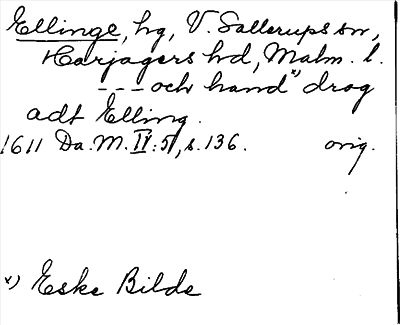 Ellinge, hg, V. Sallerups sn,
Harjagers hd, Malm. l.
--- och hand x) drog
adt Elling.
1611 Da. M. IV:5, s. 136. orig.
x) Eske Bilde